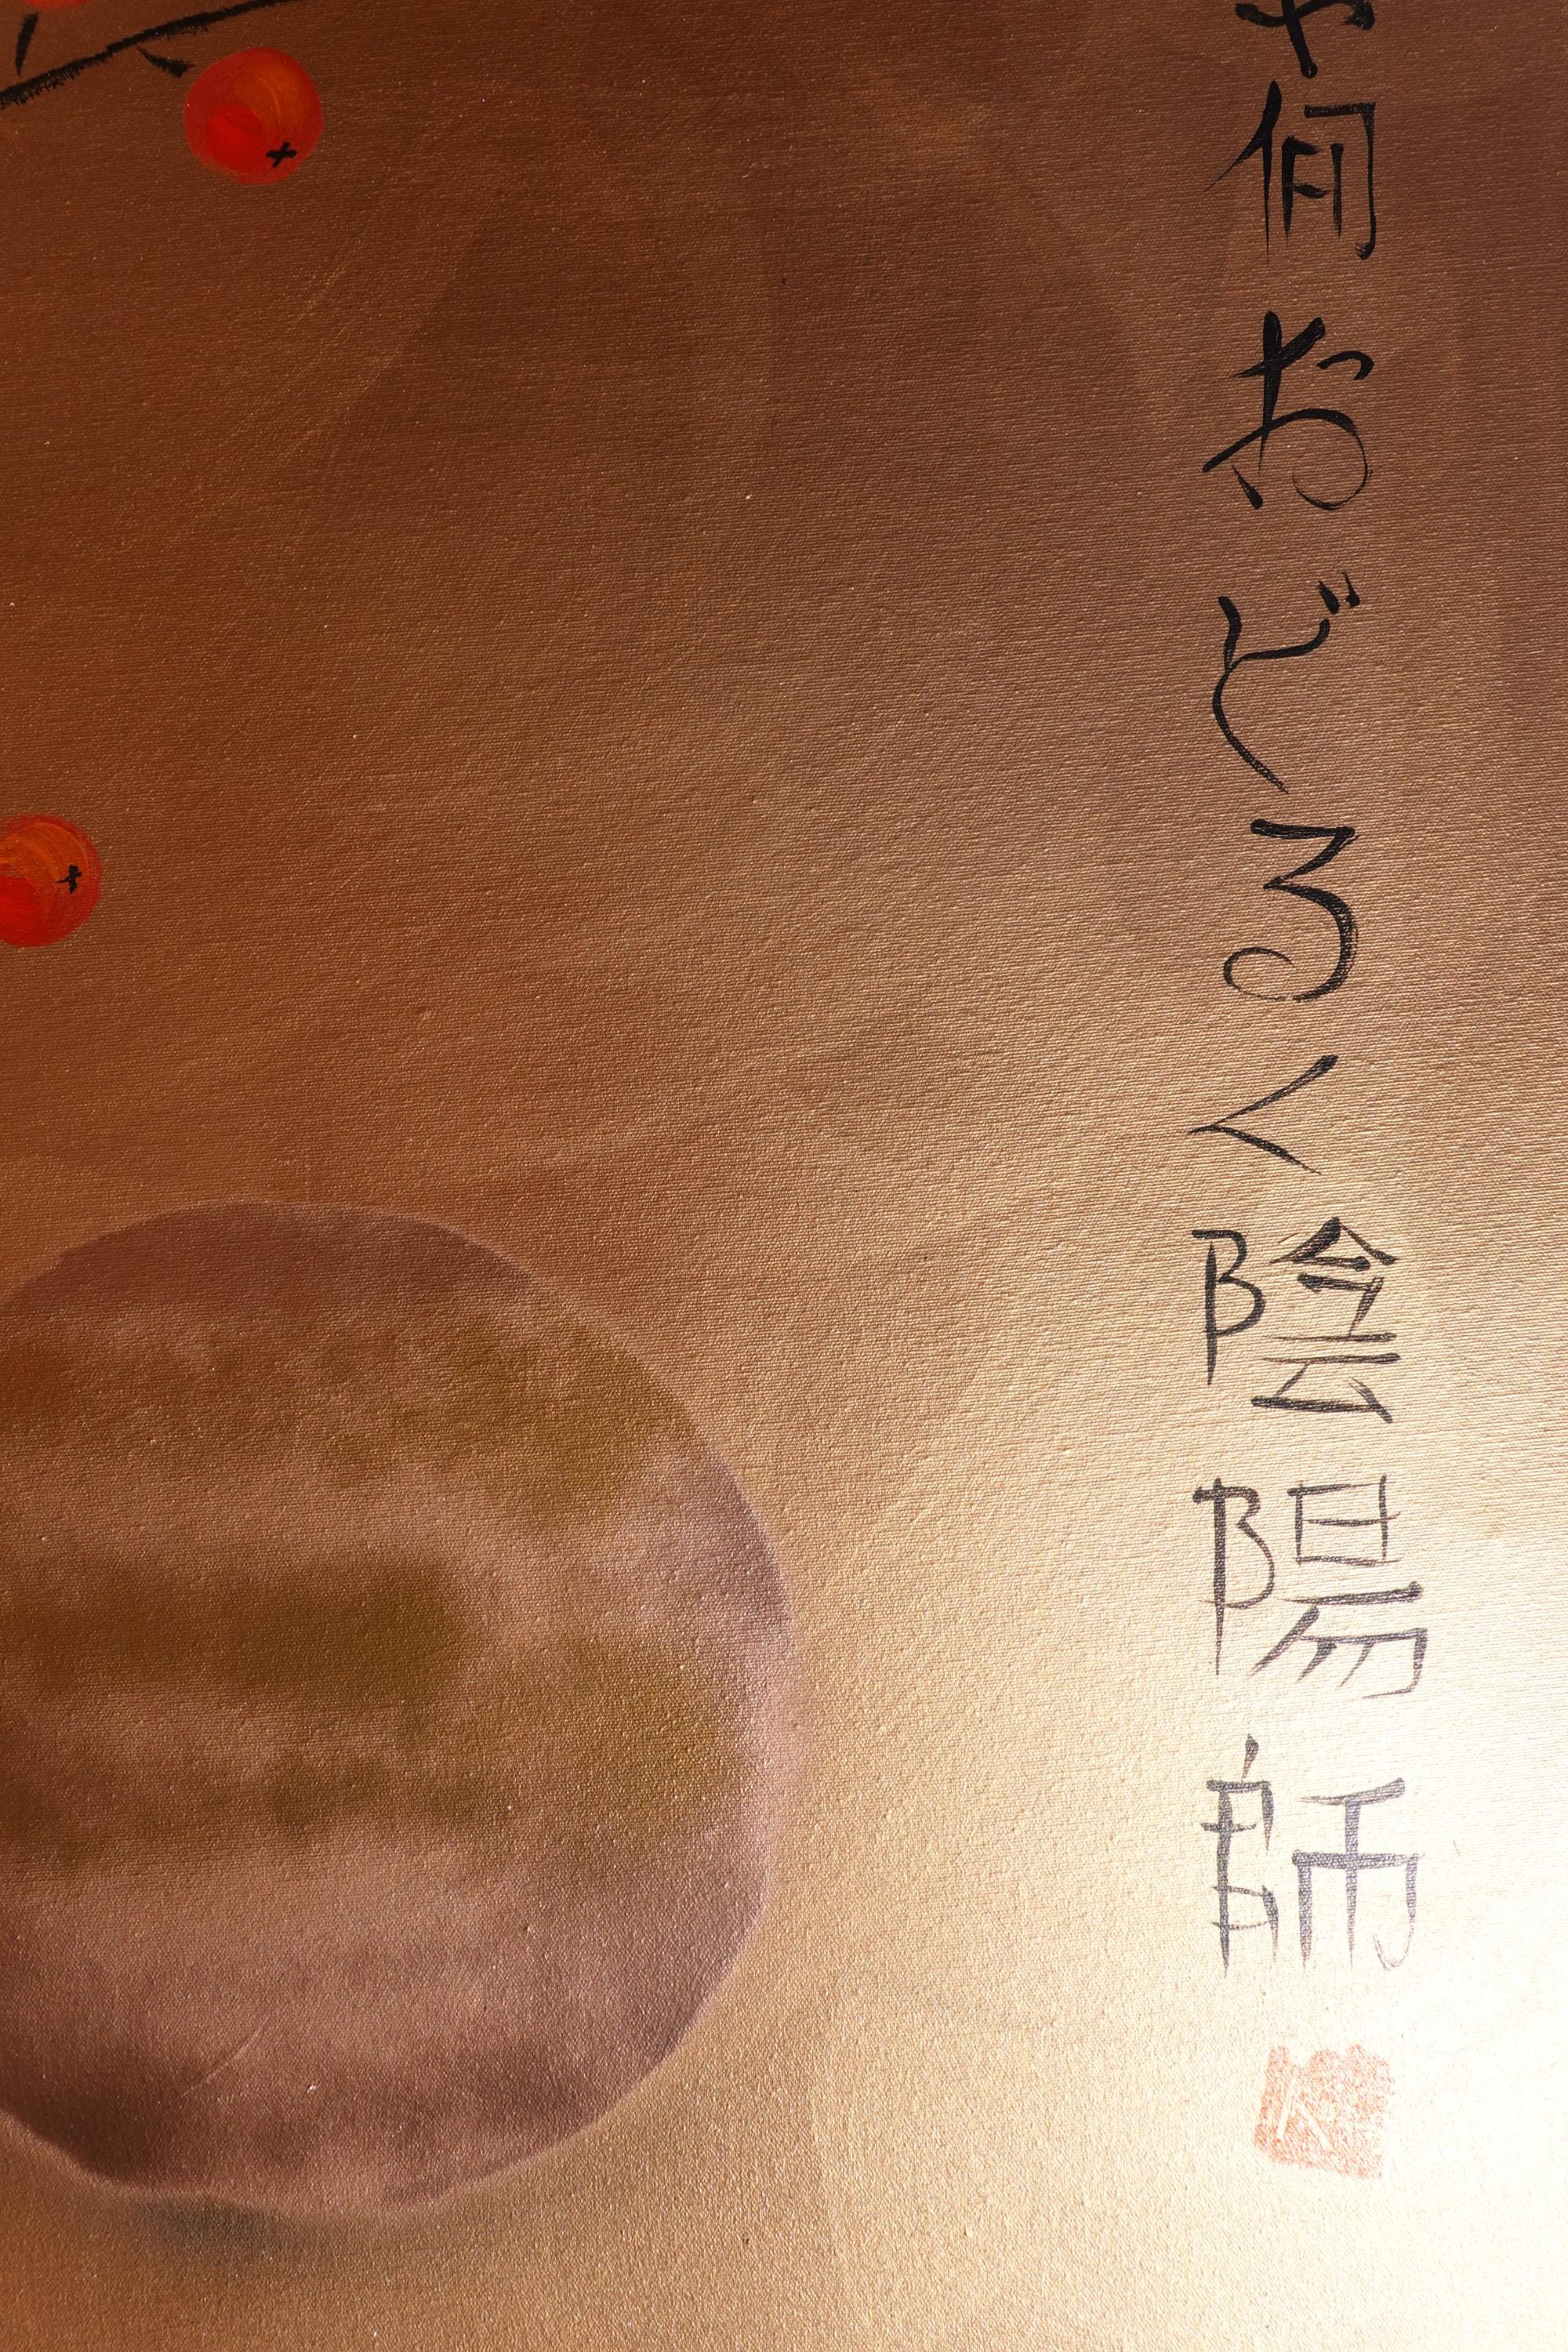 や何おどろく陰陽師